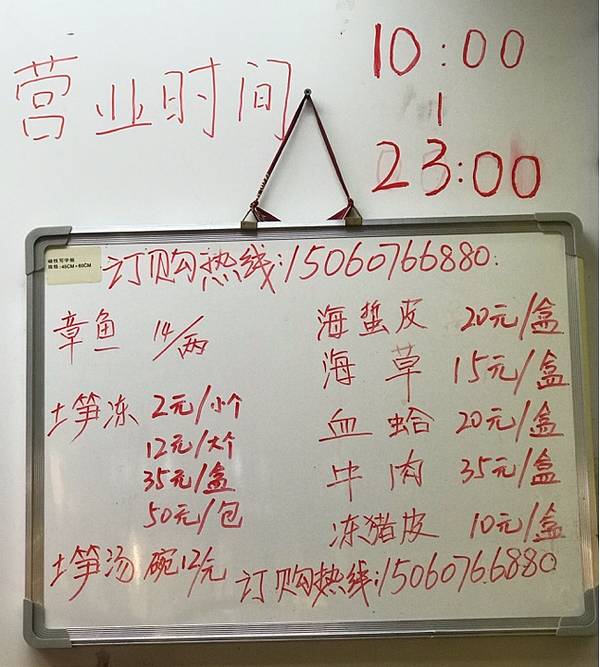 营业时间
10:00
|
23:00
磁性写字板
规格:45CM*60CM
订购热线:15060766880.
章鱼 14/两
土笋冻 2元/小个
12元/大个
35元/盒
50元/包
土笋汤 碗12元
海蜇皮 20元/盒
海草 15元/盒
血蛤 20元/盒
牛肉 35元/盒
冻猪皮 10元/盒
订购热线:15060766880